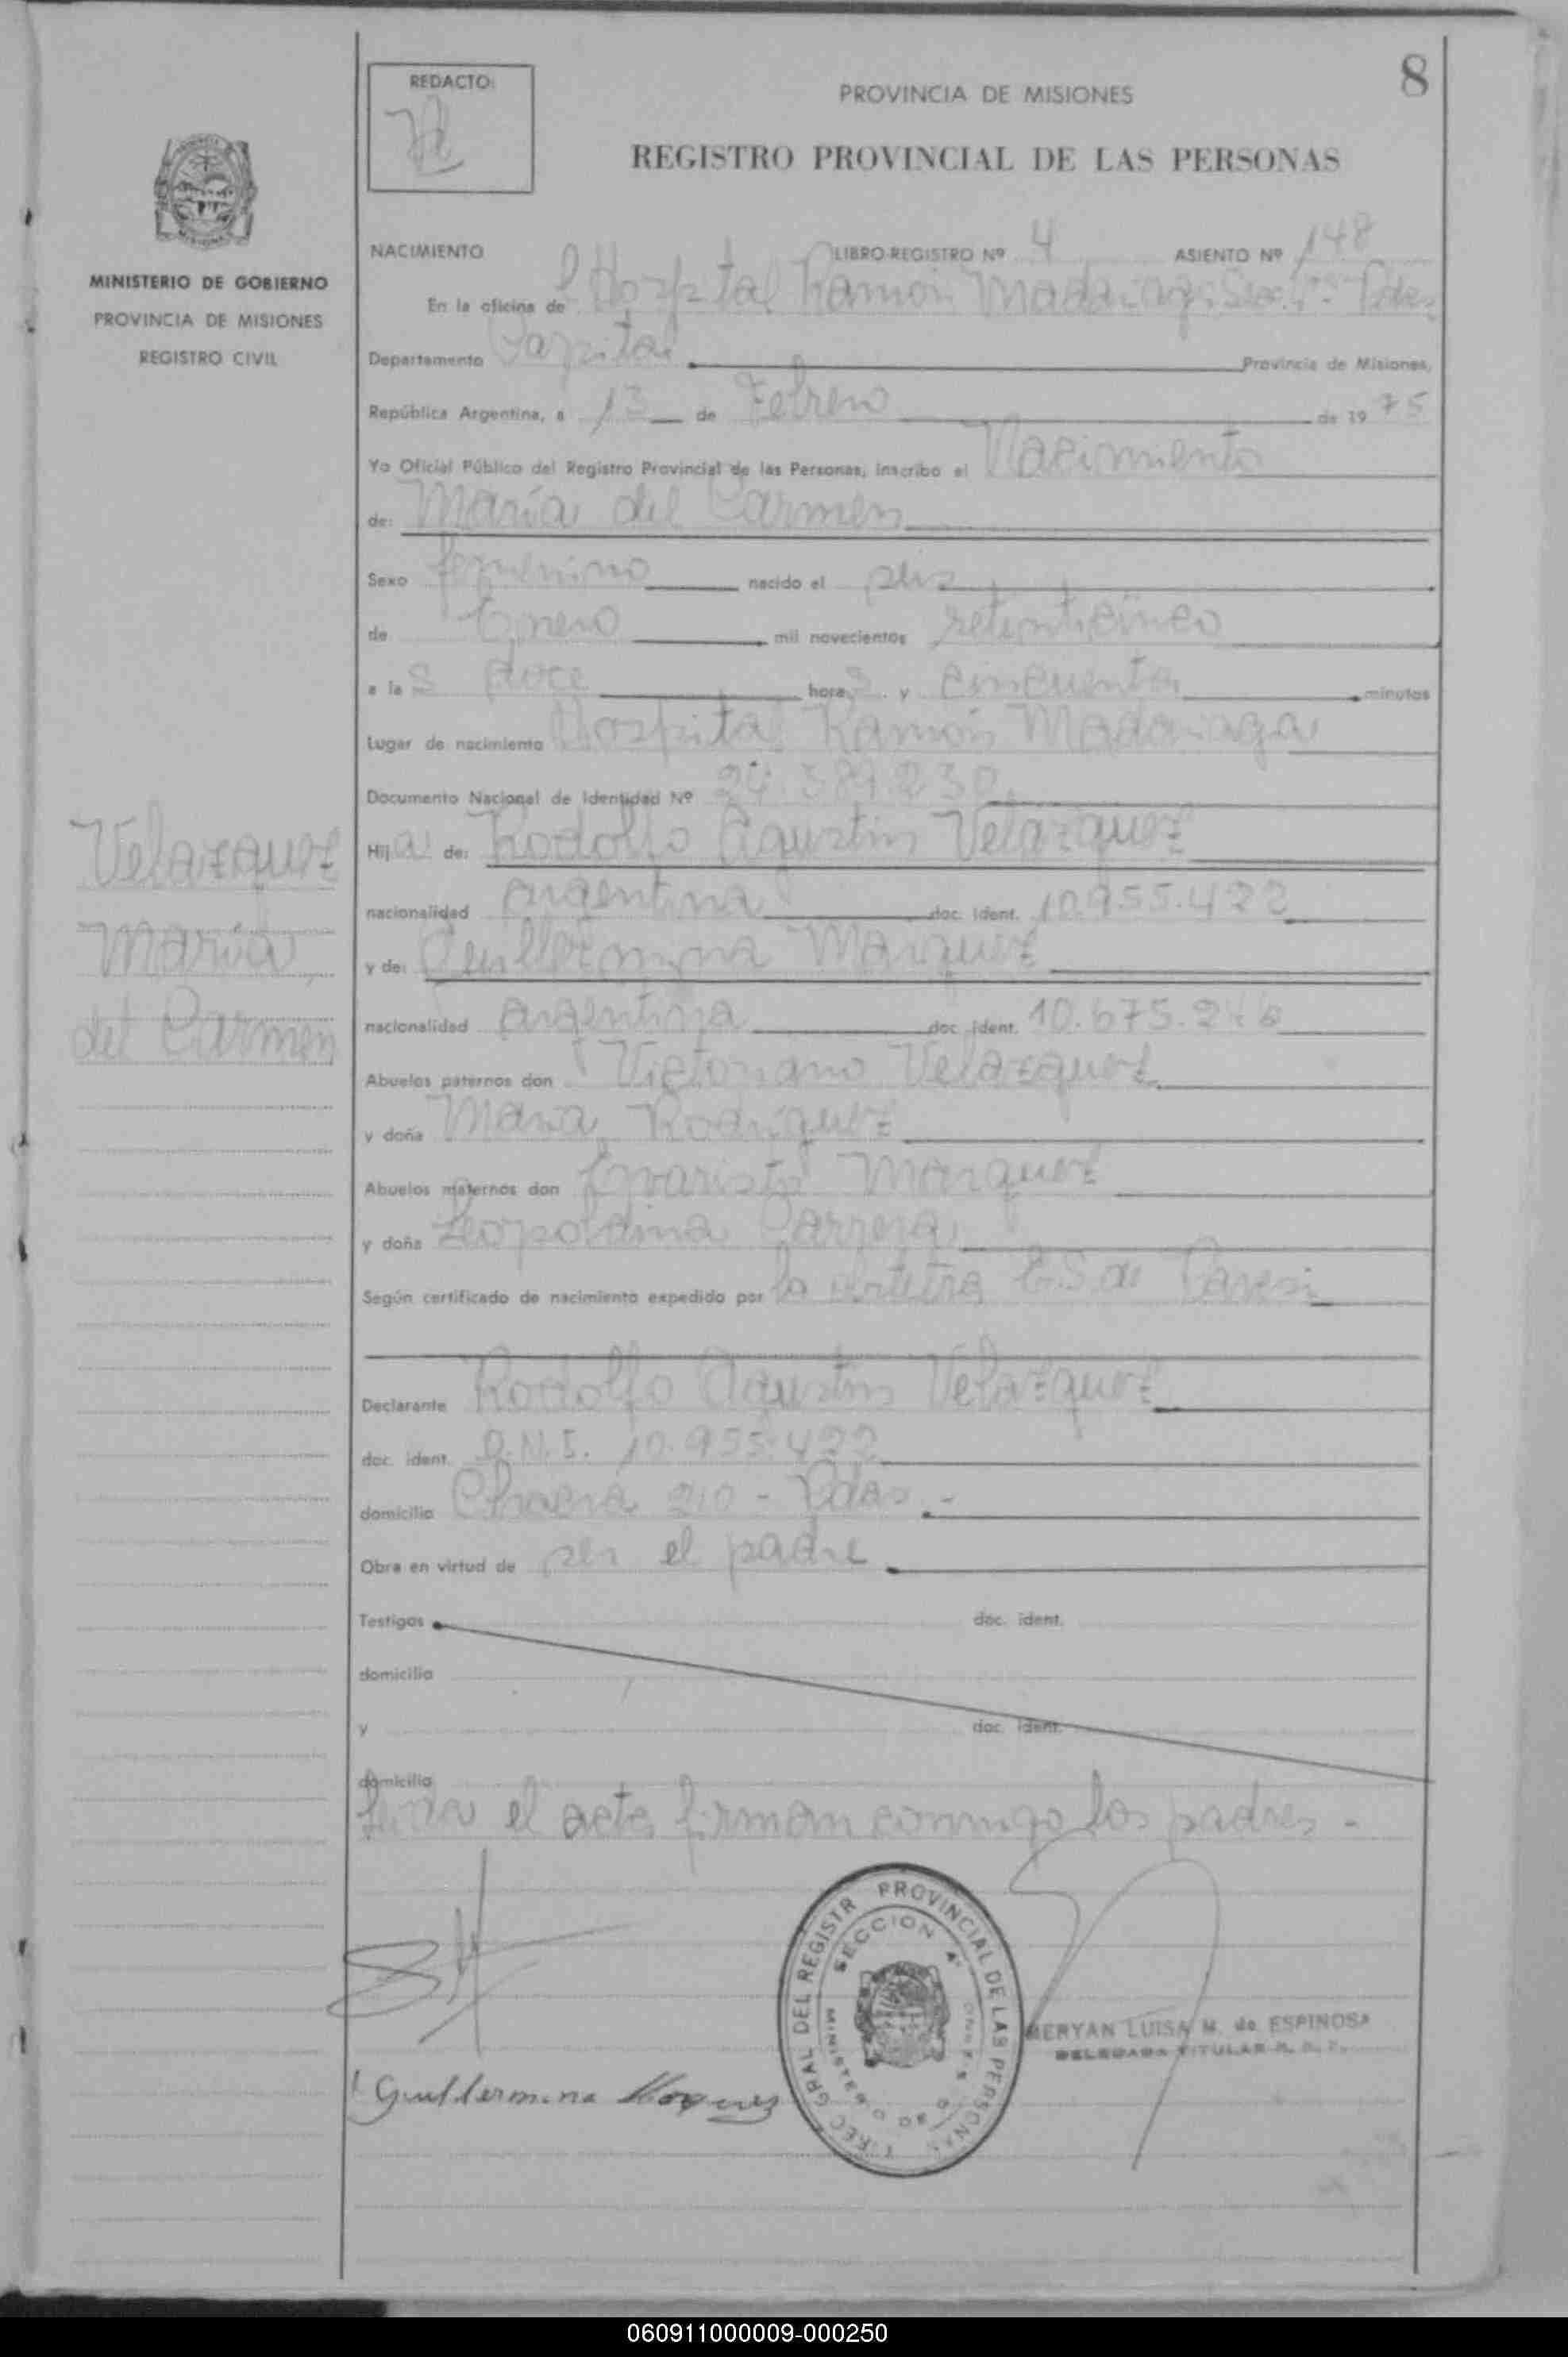 8
REDACTO:
PROVINCIA DE MISIONES
REGISTRO PROVINCIAL DE LAS PERSONAS
MINISTERIO DE GOBIERNO
PROVINCIA DE MISIONES
REGISTRO CIVIL
NACIMIENTO LIBRO-REGISTRO Nº 4 ASIENTO Nº 148
En la oficina de Hospital Ramón Madariaga
Departamento Capital Provincia de Misiones,
República Argentina, a 13 de Febrero de 1975
Yo Oficial Público del Registro Provincial de las Personas, inscribo el Nacimiento
de: María del Carmen
Sexo femenino nacido el
de Enero mil novecientos setenticinco
a las doce horas y cincuenta minutos
Lugar de nacimiento Hospital Ramón Madariaga
Documento Nacional de Identidad Nº 24.389.230
Velazquez
María
del Carmen
Hija de: Rodolfo Agustin Velazquez
nacionalidad argentina doc. ident. 10.955.422
y de: Guillermina Marquez
nacionalidad argentina doc. ident. 10.675.246
Abuelos paternos don Victoriano Velazquez
y doña Maria Rodriguez
Abuelos maternos don Evaristo Marquez
y doña Leopoldina
Según certificado de nacimiento expedido por la E.S. de
Declarante Rodolfo Agustin Velazquez
doc. ident. D.N.I. 10.955.422
domicilio Chacra 210 - Pdas.-
Obra en virtud de ser el padre
Testigos doc. ident.
domicilio
y doc. ident.
domicilio
Leida el acta firman conmigo los padres.-
DIREC. GRAL DEL REGISTR PROVINCIAL DE LAS PERSONAS
SECCION 4ª
MERYAN LUISA M. de ESPINOSA
DELEGADA TITULAR R. P. P.
Guillermina Marquez
060911000009-000250